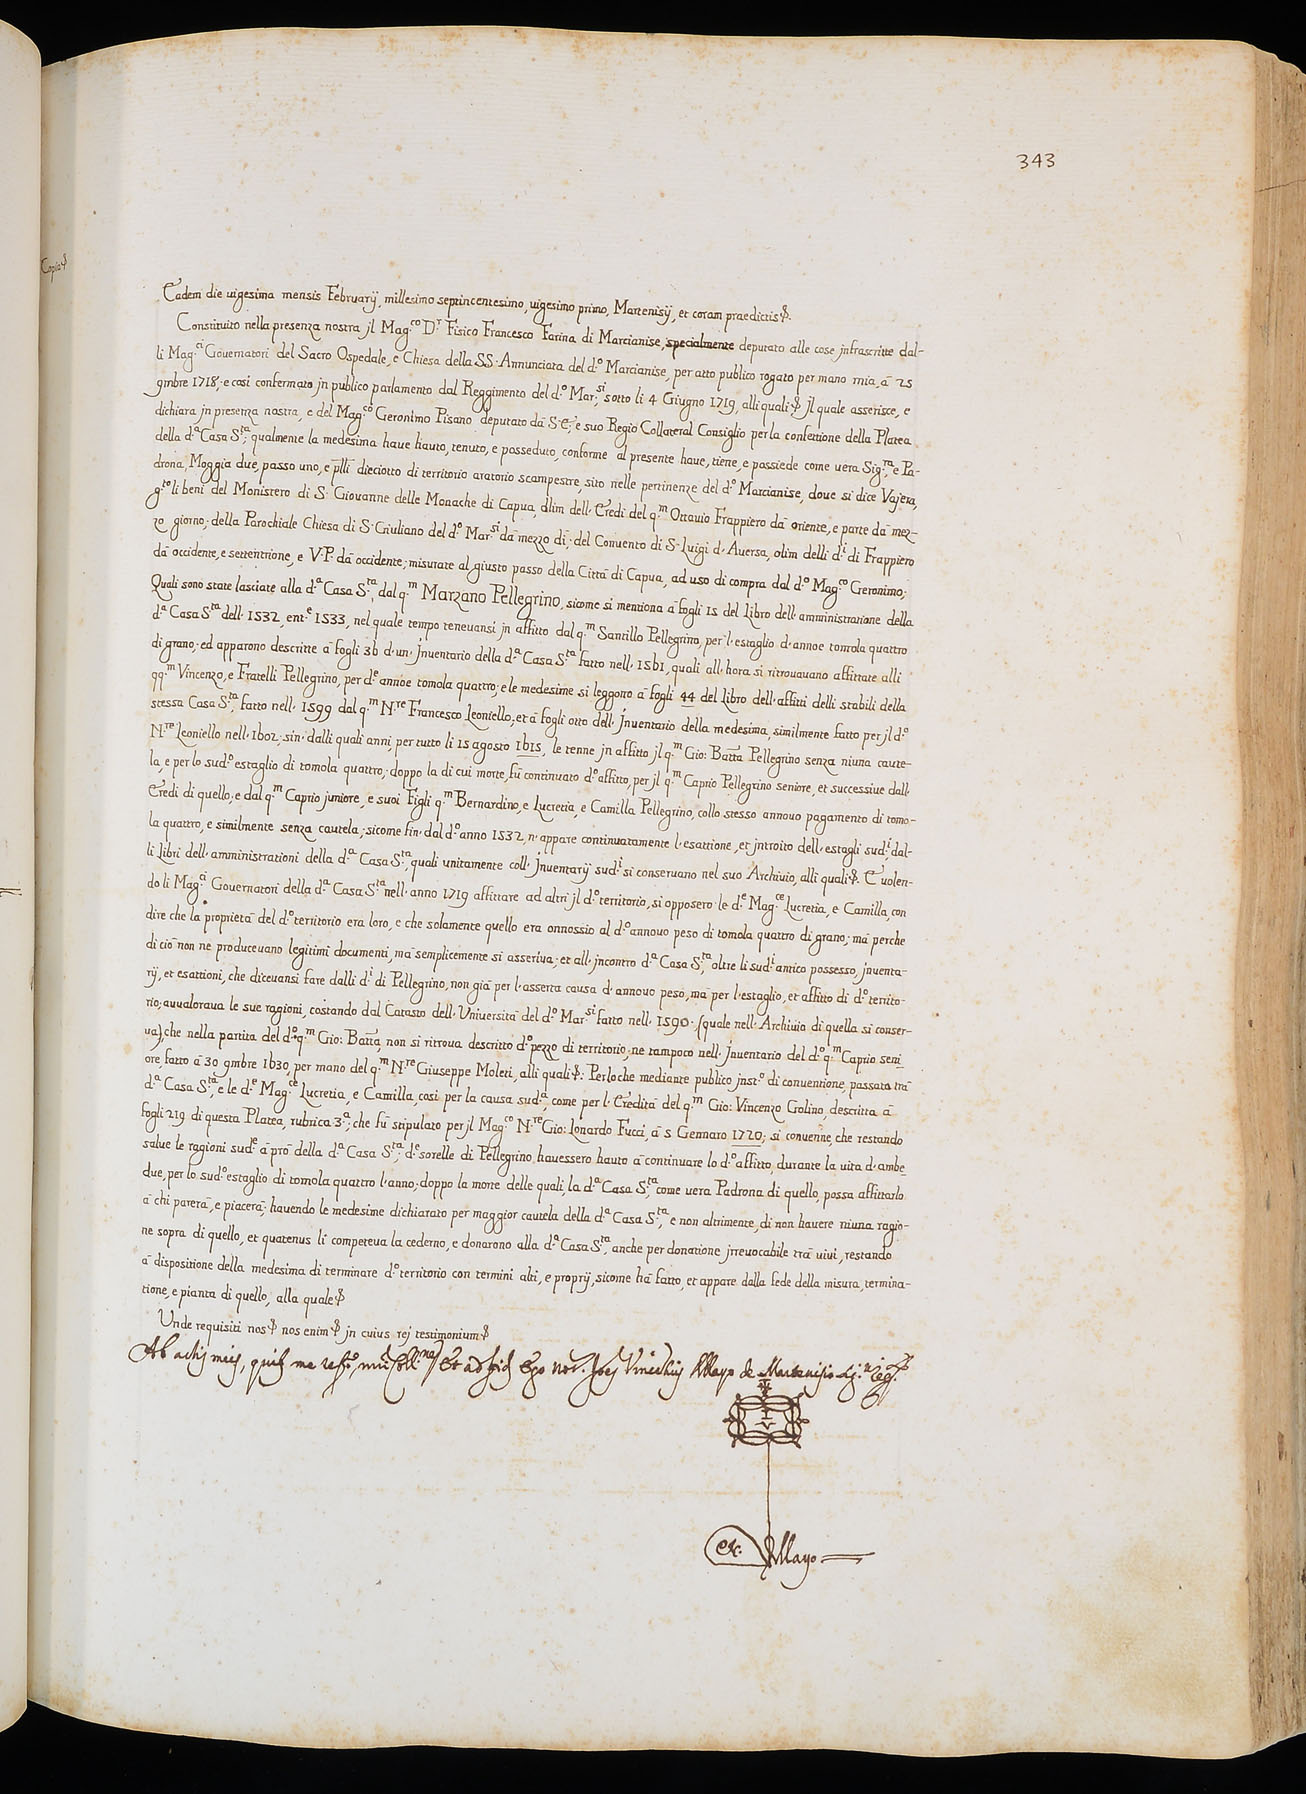 343
Copia
Eadem die uigesima mensis Februarij, millesimo septincentesimo, uigesimo primo, Martenisij, et coram praedictis &.
Constituito nella presenza nostra jl Mag.co D.r Fisico Francesco Farina di Marcianise, specialmente deputato alle cose jnfrascritte dal-
li Mag.ci Gouernatori del Sacro Ospedale, e Chiesa della SS. Annunciata del d.o Marcianise, per atto publico rogato per mano mia, à 25
9mbre 1718; e così confermato jn publico parlamento dal Reggimento del d.o Mar.si, sotto li 4 Giugno 1719, alli quali &. Jl quale asserisce, e
dichiara jn presenza nostra, e del Mag.co Geronimo Pisano deputato dà S.E., e suo Regio Collateral Consiglio per la confettione della Platea
della d.a Casa S.ta, qualmente la medesima haue hauto, tenuto, e posseduto, conforme al presente haue, tiene, e possiede come uera Sig.ra, e Pa-
drona, Moggia due, passo uno, e p̄lli dieciotto di territorio aratorio scampestre, sito nelle pertinenze del d.o Marcianise, doue si dice Vajera,
g.to li beni del Monistero di S. Giouanne delle Monache di Capua, olim dell' Eredi del q.m Ottauio Frappiero dà oriente, e parte dà mez-
zo giorno; della Parochiale Chiesa di S. Giuliano del d.o Mar.si dà mezzo dì; del Conuento di S. Luigi d' Auersa, olim delli d.i di Frappiero
dà occidente, e settentrione, e V.P. dà occidente; misurate al giusto passo della Città di Capua, ad uso di compra dal d.o Mag.co Geronimo;
Quali sono state lasciate alla d.a Casa S.ta, dal q.m Marzano Pellegrino, sicome si mentiona à fogli 15 del Libro dell' amministratione della
d.a Casa S.ta dell' 1532, ent.e 1533, nel quale tempo teneuansi jn affitto dal q.m Santillo Pellegrino, per l' estaglio d' annoe tomola quattro
di grano; ed apparono descritte à fogli 36 d' un' Jnuentario della d.a Casa S.ta fatto nell' 1561, quali all' hora si ritrouauano affittate alli
qq.m Vincenzo, e Fratelli Pellegrino, per d.e annoe tomola quattro; e le medesime si leggono à fogli 44 del Libro dell' affitti delli stabili della
stessa Casa S.ta, fatto nell' 1599 dal q.m N.re Francesco Leoniello; et à fogli otto dell' Jnuentario della medesima, similmente fatto per jl d.o
N.re Leoniello nell' 1602; sin' dalli quali anni, per tutto li 15 agosto 1615, le tenne jn affitto jl q.m Gio: Batt̄a Pellegrino senza niuna caute-
la, e per lo sud.o estaglio di tomola quattro; doppo la di cui morte, fù continuato d.o affitto, per jl q.m Caprio Pellegrino seniore, et successiue dall'
Eredi di quello, e dal q.m Caprio juniore, e suoi Figli q.m Bernardino, e Lucretia, e Camilla Pellegrino, collo stesso annouo pagamento di tomo-
la quattro, e similmente senza cautela; sicome fin' dal d.o anno 1532, n' appare continuatamente l' esattione, et jntroito dell' estagli sud.i dal-
li Libri dell' amministrationi della d.a Casa S.ta, quali unitamente coll' Jnuentarij sud.i si conseruano nel suo Archiuio, alli quali &. E uolen-
do li Mag.ci Gouernatori della d.a Casa S.ta nell' anno 1719 affittare ad altri jl d.o territorio, si opposero le d.e Mag.ce Lucretia, e Camilla, con
dire che la proprietà del d.o territorio era loro, e che solamente quello era onnossio al d.o annouo peso di tomola quattro di grano; mà perche
di ciò non ne produceuano legitimi documenti, mà semplicemente si asseriua; et all' jncontro d.a Casa S.ta, oltre li sud.i antico possesso, jnuenta-
rij, et esattioni, che diceuansi fare dalli d.i di Pellegrino, non già per l' asserta causa d' annouo peso, mà per l' estaglio, et affitto di d.o territo-
rio; auualoraua le sue ragioni, costando dal Catasto dell' Uniuersità del d.o Mar.si fatto nell' 1590. (quale nell' Archiuio di quella si conser-
ua), che nella partita del d.o q.m Gio: Batt̄a, non si ritroua descritto d.o pezzo di territorio; ne tampoco nell' Jnuentario del d.o q.m Caprio seni
ore, fatto à 30 9mbre 1630, per mano del q.m N.re Giuseppe Moleti, alli quali &: Perloche mediante publico jnst.o di conuentione, passata trà
d.a Casa S.ta, e le d.e Mag.ce Lucretia, e Camilla, così per la causa sud.a, come per l' Eredità del q.m Gio: Vincenzo Golino, descritta à
fogli 219 di questa Platea, rubrica 3.a; che fù stipulato per jl Mag.co N.re Gio: Lonardo Fucci, à 5 Gennaro 1720; si conuenne, che restando
salue le ragioni sud.e à prò della d.a Casa S.ta; d.e sorelle di Pellegrino hauessero hauto à continuare lo d.o affitto, durante la uita d' ambe
due, per lo sud.o estaglio di tomola quattro l' anno; doppo la morte delle quali, la d.a Casa S.ta, come uera Padrona di quello, possa affittarlo
à chi parerà, e piacerà; hauendo le medesime dichiarato per maggior cautela della d.a Casa S.ta, e non altrimente, di non hauere niuna ragio-
ne sopra di quello, et quatenus li competeua la cederno, e donarono alla d.a Casa S.ta, anche per donatione jrreuocabile trà uiui, restando
à dispositione della medesima di terminare d.o territorio con termini alti, e proprij, sicome hà fatto, et appare dalla fede della misura, termina-
tione, e pianta di quello, alla quale &
Unde requisiti nos & nos enim & jn cuius rej testimonium &
Ab actis meis, Et ad Ego Not. de Martenisio